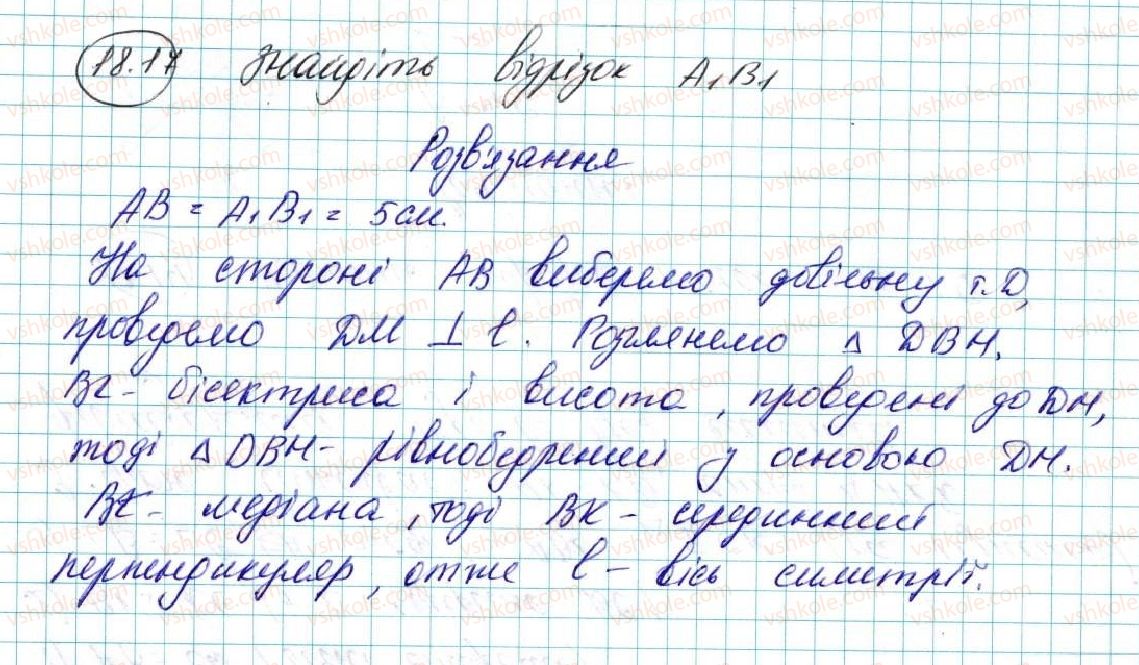 18.17 Знайдіть відрізок A₁B₁
Розв'язання
AB = A₁B₁ = 5см.
На стороні AB виберемо довільну т. D,
проведемо DM ⊥ l. Розглянемо △ DBH.
BK - бісектриса і висота, проведені до DH,
тоді △ DBH - рівнобедрений з основою DH.
BK - медіана, тоді BK - серединний
перпендикуляр, отже l - вісь симетрії.
vshkole.com